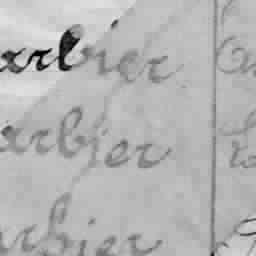 arbier
arbier
arbier